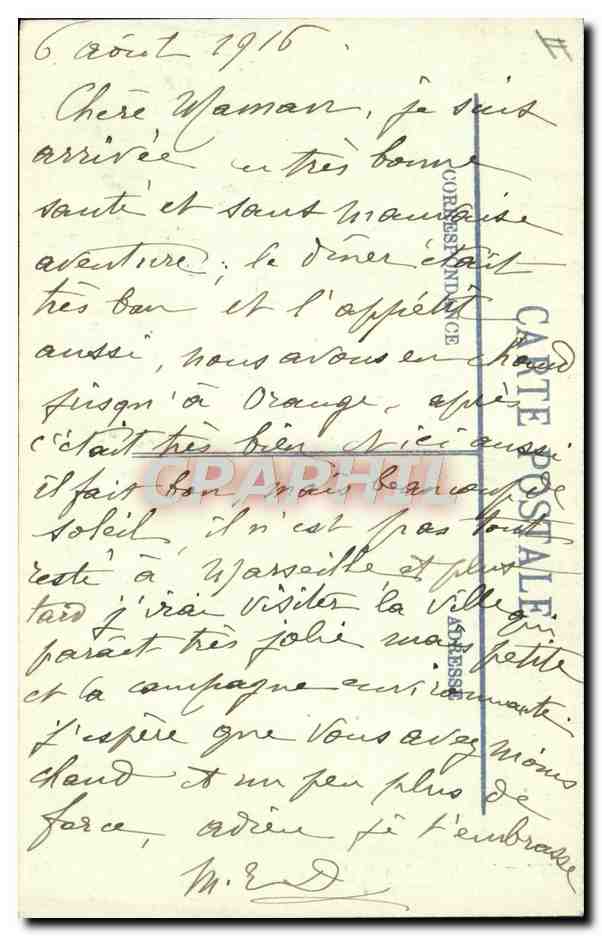 6 août 1916.
Chère Maman, je suis
arrivée en très bonne
santé et sans mauvaise
aventure; le dîner était
très bon et l'appétit
aussi, nous avons eu chaud
jusqu'à Orange, après
c'était très bien et ici aussi
il fait bon, mais beaucoup de
soleil, il n'est pas tout
resté à Marseille, et plus
tard j'irai visiter la ville qui
paraît très jolie mais petite
et la campagne environnante.
j'espère que vous avez moins
chaud et un peu plus de
force, adieu je t'embrasse
M.E.D
CARTE POSTALE
CORRESPONDANCE
ADRESSE
CPARAMA